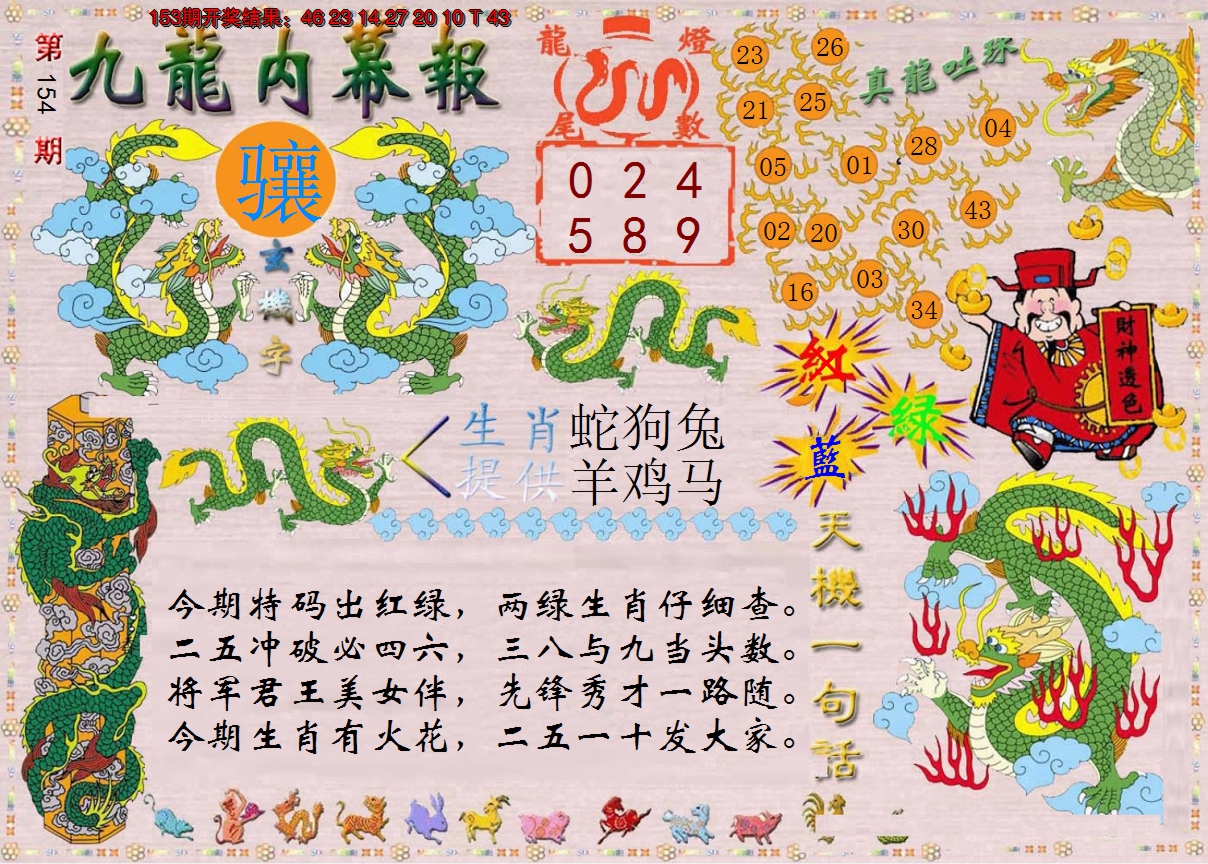 153期开奖结果：46 23 14 27 20 10 T 43
第154期
九龍内幕報
骧
玄機字
龍燈
尾數
0 2 4
5 8 9
真龍吐珠
23
26
21
25
28
04
05
01
43
02
20
30
03
16
34
財神透色
紅
绿
藍
生肖 蛇狗兔
提供 羊鸡马
天機一句话
今期特码出红绿，两绿生肖仔细查。
二五冲破必四六，三八与九当头数。
将军君王美女伴，先锋秀才一路随。
今期生肖有火花，二五一十发大家。